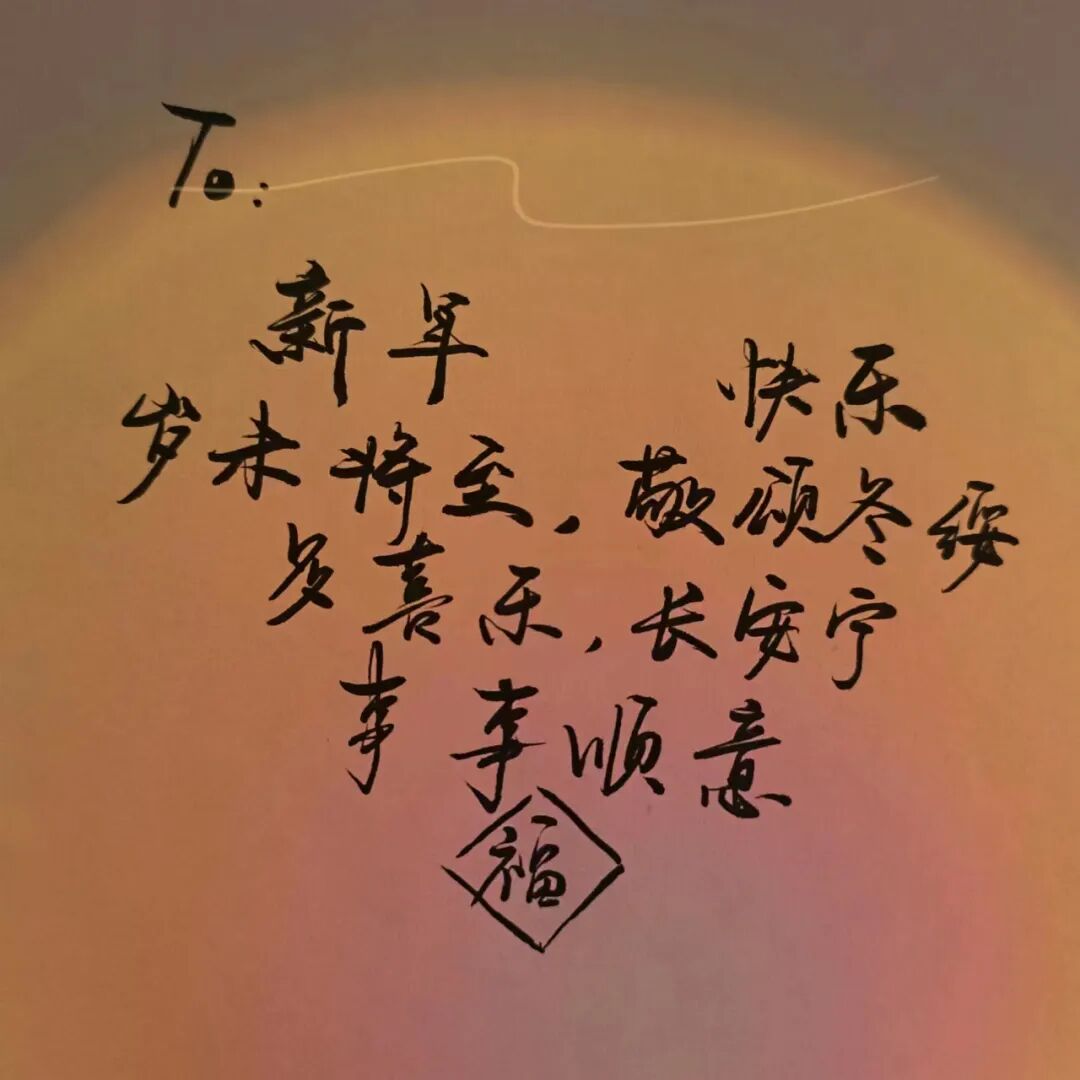 To:
新年 快乐
岁末将至，敬颂冬绥
多喜乐，长安宁
事事顺意
福